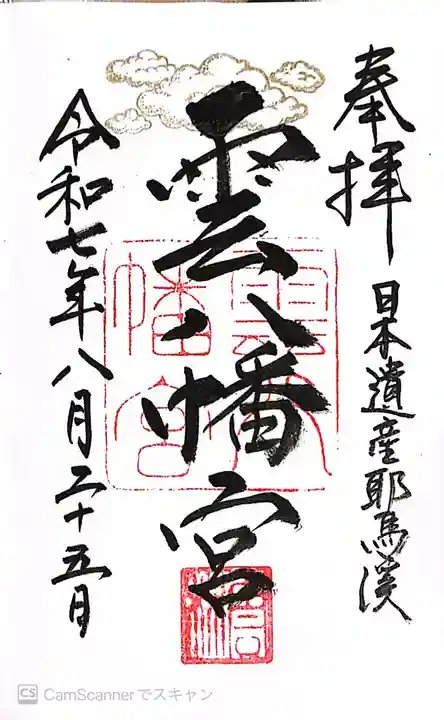 奉拝
日本遺産耶馬溪
雲八幡宮
雲八幡宮
令和七年八月二十五日
CS CamScannerでスキャン